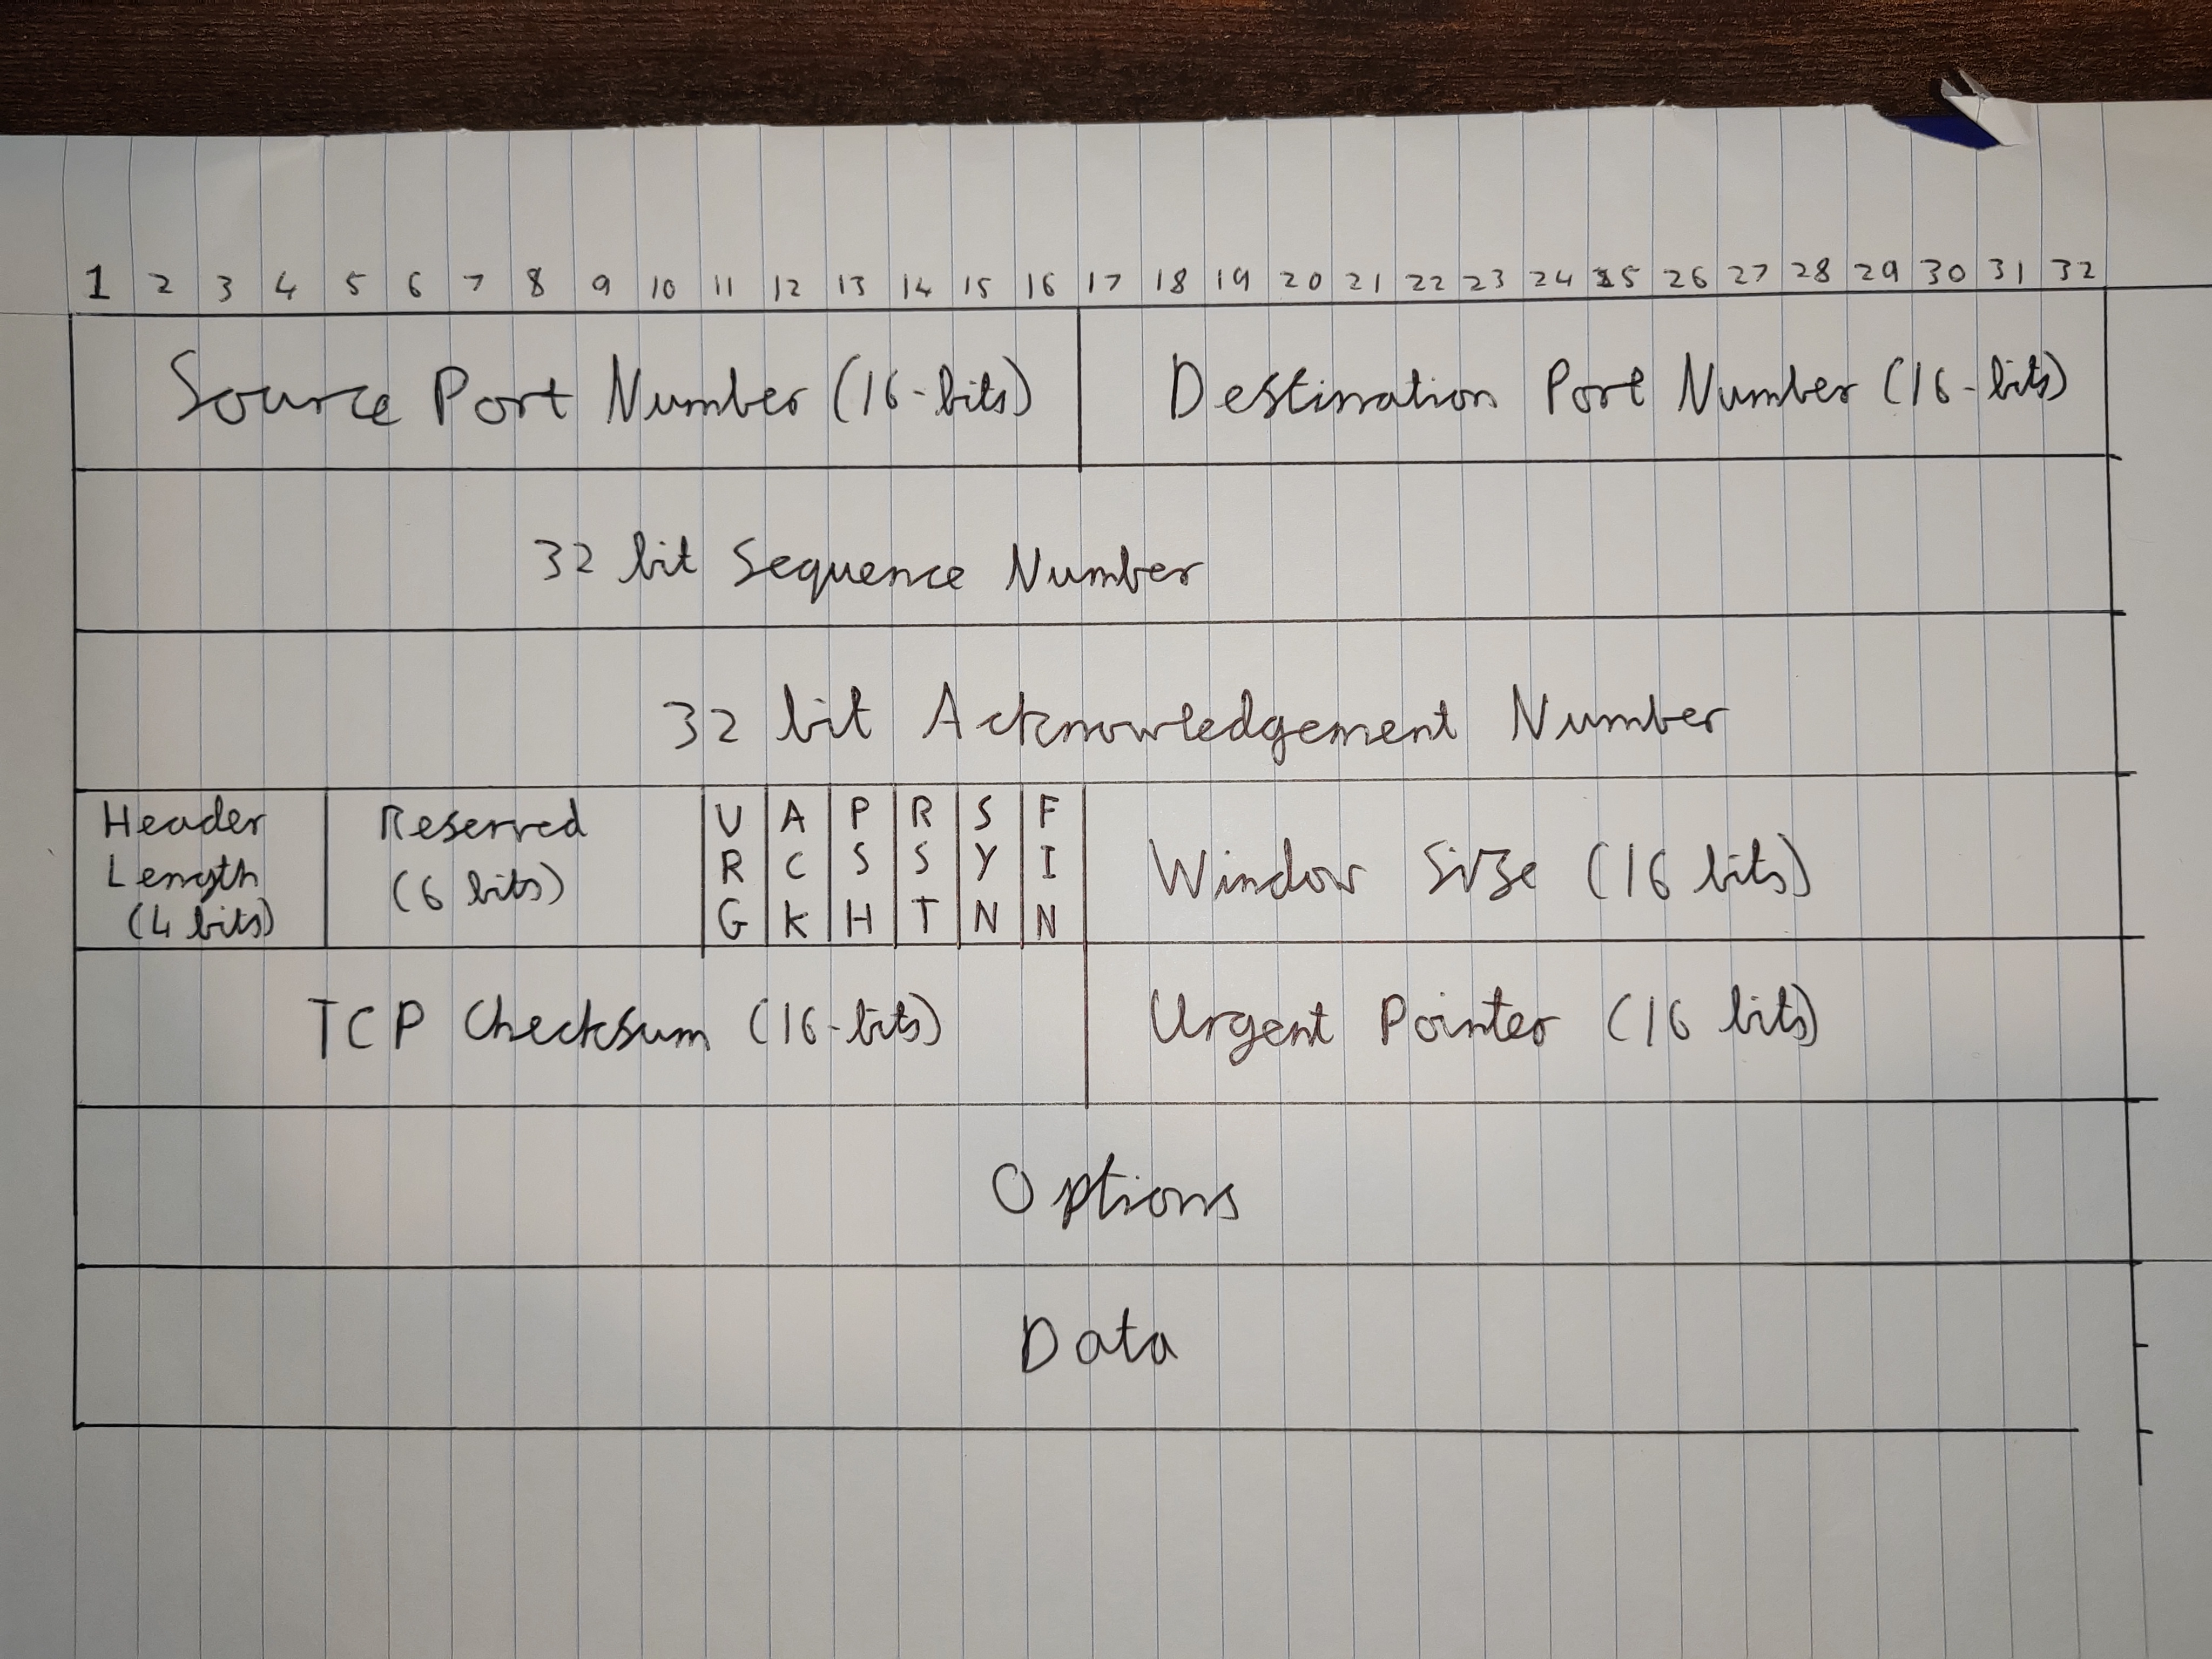 1 2 3 4 5 6 7 8 9 10 11 12 13 14 15 16 17 18 19 20 21 22 23 24 25 26 27 28 29 30 31 32
Source Port Number (16-bits) Destination Port Number (16-bits)
32 bit Sequence Number
32 bit Acknowledgement Number
Header
Length
(4 bits)
Reserved
(6 bits)
URG ACK PSH RST SYN FIN
Window Size (16 bits)
TCP Checksum (16-bits) Urgent Pointer (16 bits)
Options
Data